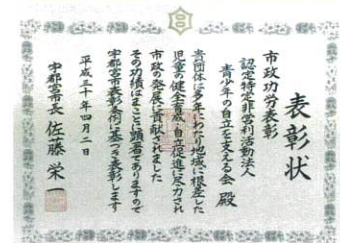 表彰状
市政功労表彰
認定特定非営利活動法人
青少年の自立を支える会 殿
貴団体は多年にわたり地域に根差した
児童の健全育成・自立促進に尽力され
市政の発展に貢献されました
その功績はまことに顕著でありますので
宇都宮市表彰条例に基づき表彰します
平成三十年四月二日
宇都宮市長 佐藤栄一